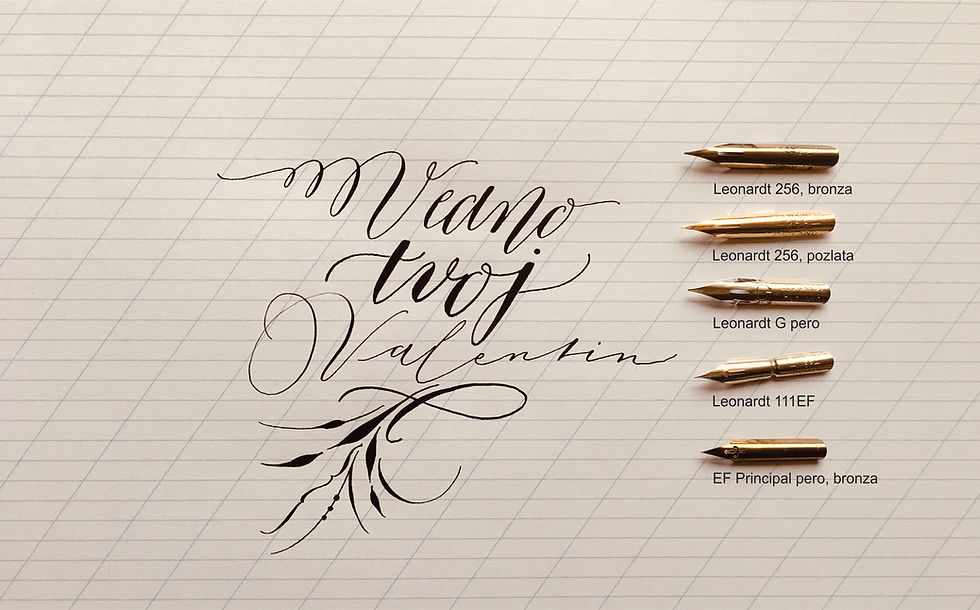 Vedno
tvoj
Valentin
Leonardt 256, bronza
Leonardt 256, pozlata
Leonardt G pero
Leonardt 111EF
EF Principal pero, bronza